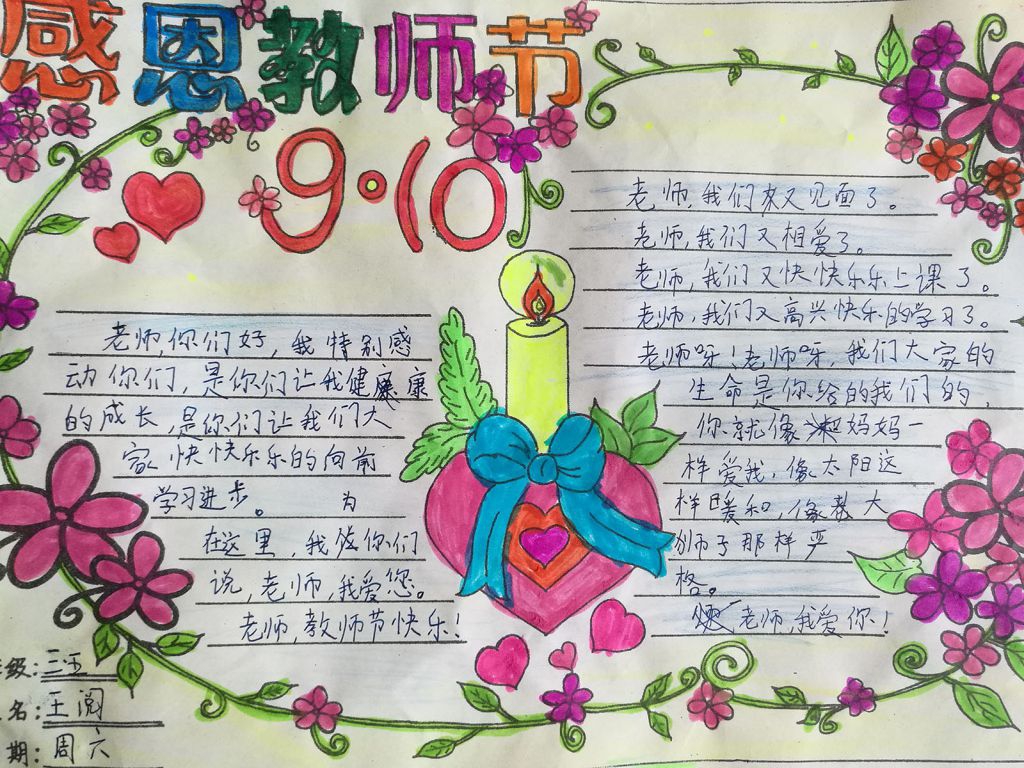 感恩教师节
9·10
老师,你们好,我特别感
动你们,是你们让我健康
的成长,是你们让我们大
家快快乐乐的向前
学习进步。 为
在这里,我饿你们
说,老师,我爱您。
老师,教师节快乐!
级:三五
名:王阅
期:周六
老师,我们来又见面了。
老师,我们又相爱了。
老师,我们又快快乐乐上课了。
老师,我们又高兴快乐的学习了。
老师呀!老师呀,我们大家的
生命是你给的我们的,
你就像妈妈一
样爱我,像太阳这
样暖和,像大
师子那样严
格。
老师,我爱你!